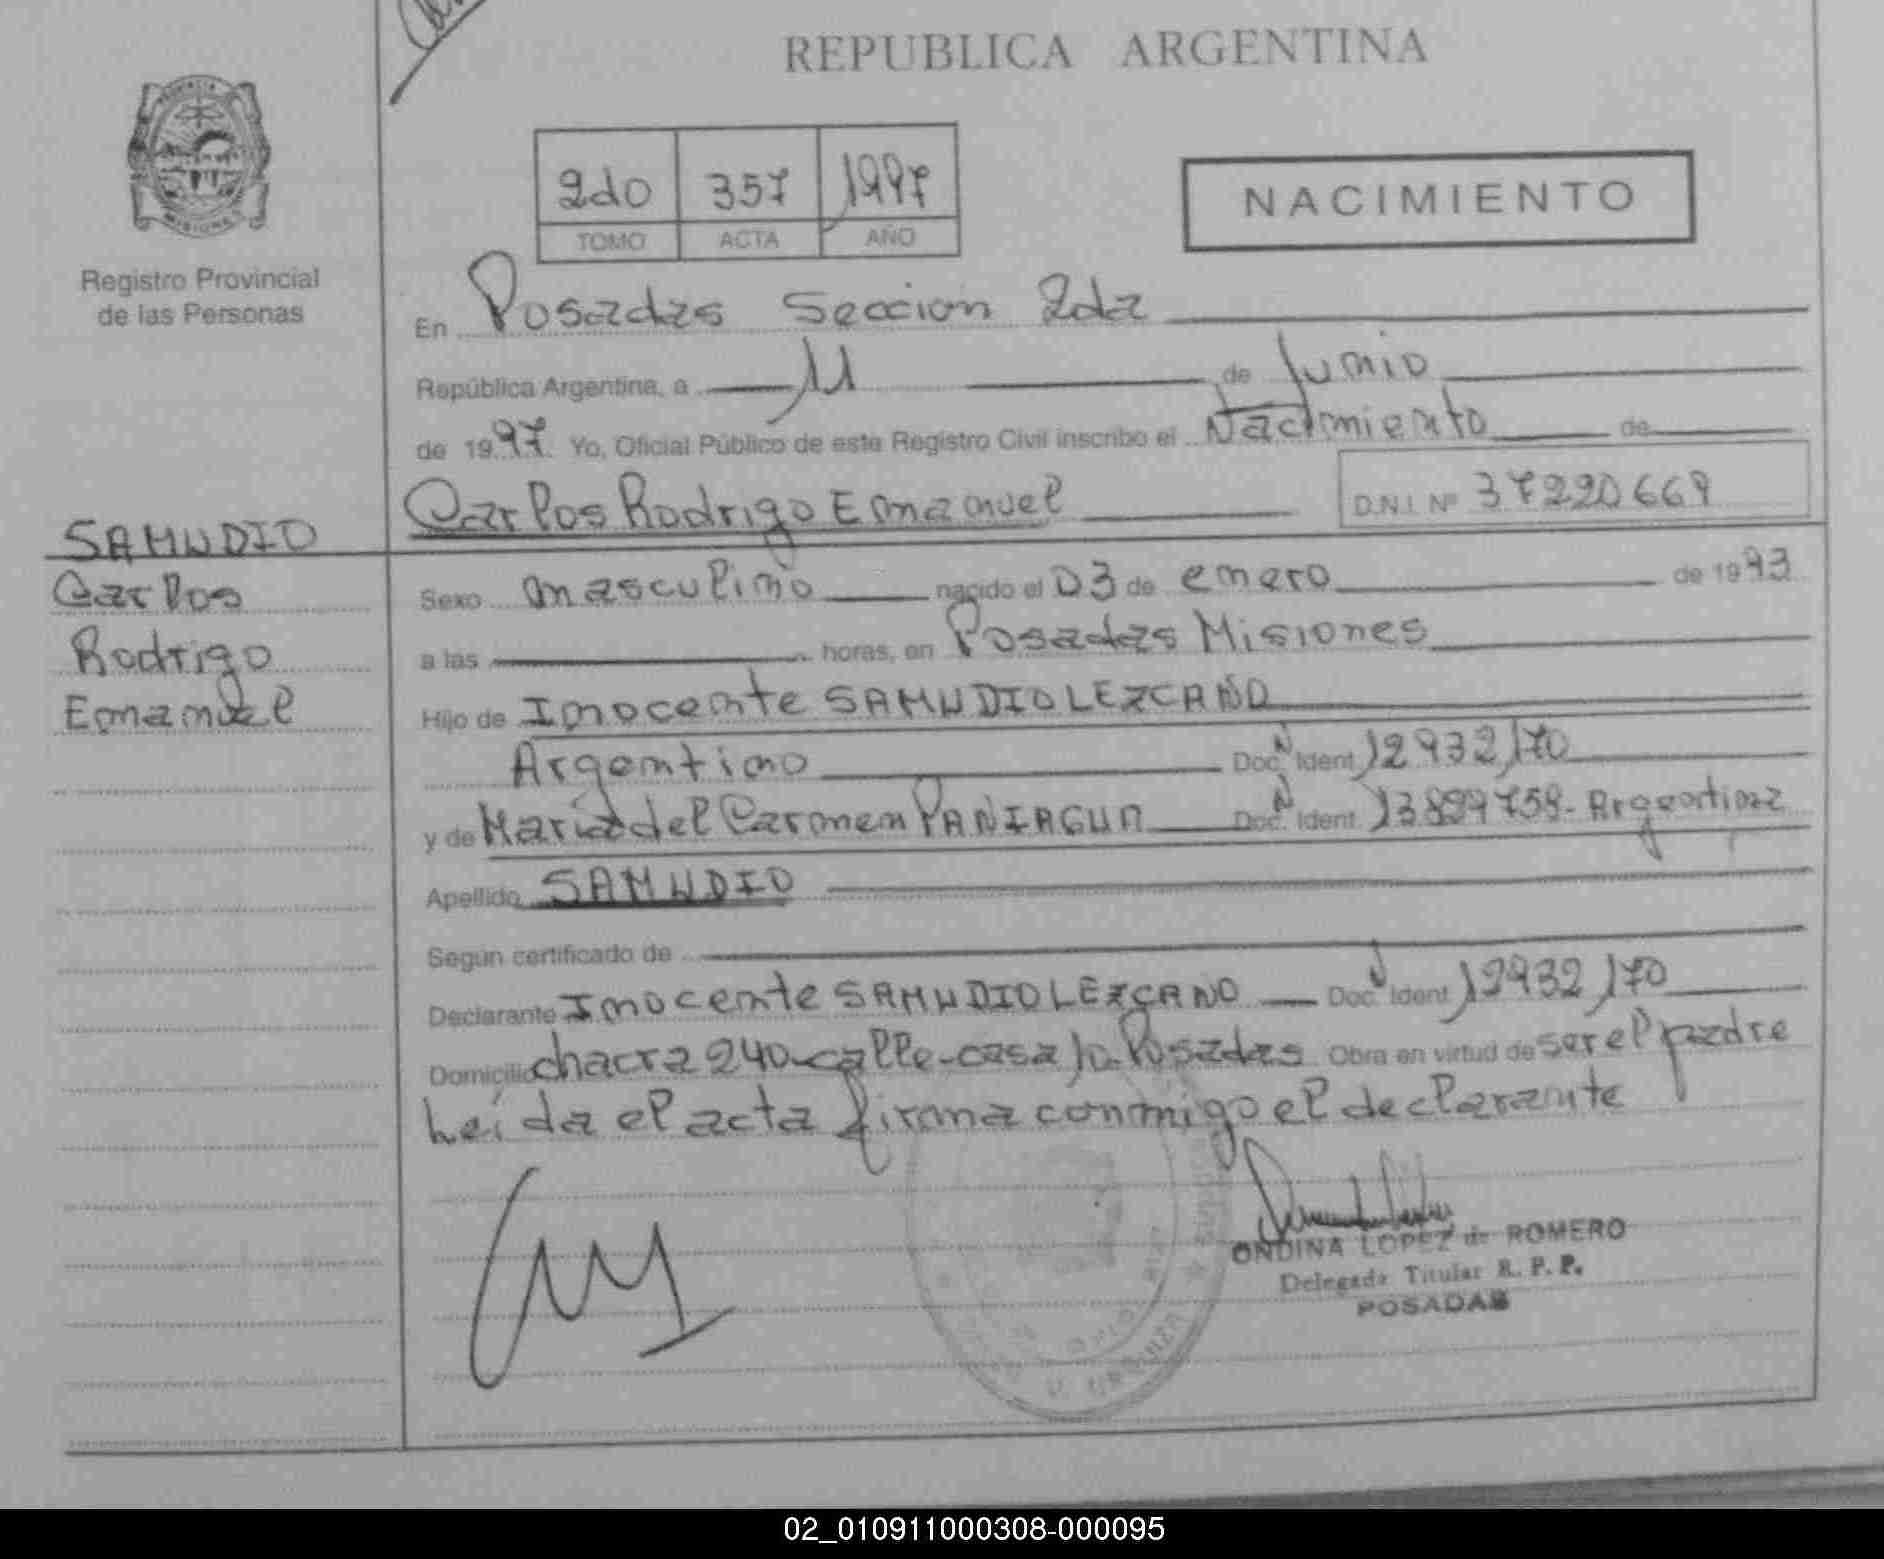 REPUBLICA ARGENTINA
2do 357 1997
TOMO ACTA AÑO
NACIMIENTO
Registro Provincial
de las Personas
En Posadas Seccion 2da
República Argentina, a 11 de Junio
de 1997. Yo, Oficial Público de este Registro Civil inscribo el Nacimiento de
Carlos Rodrigo Emanuel D.N.I. Nº 37220669
SAMUDIO
Carlos
Rodrigo
Emanuel
Sexo masculino nacido el 03 de enero de 1993
a las horas, en Posadas Misiones
Hijo de Inocente SAMUDIO LEZCANO
Argentino Doc. N Ident 12932/70
y de María del Carmen PANIAGUA Doc. N Ident. 13899758- Argentina
Apellido SAMUDIO
Según certificado de
Declarante Inocente SAMUDIO LEZCANO Doc. N Ident 12932/70
Domicilio chacra 240-calle-casa 10-Posadas Obra en virtud de ser el padre
Leída el acta firma conmigo el declarante
ONDINA LOPEZ de ROMERO
Delegada Titular R. P. P.
POSADAS
02_010911000308-000095